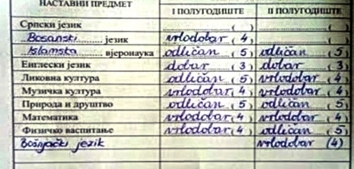 НАСТАВНИ ПРЕДМЕТ I ПОЛУГОДИШТЕ II ПОЛУГОДИШТЕ
Српски језик ( ) ( )
Bosanski језик vrlodobar (4) ( )
Islamska вјеронаука odličan (5) odličan (5)
Енглески језик dobar (3) dobar (3)
Ликовна култура odličan (5) vrlodobar (4)
Музичка култура vrlodobar (4) vrlodobar (4)
Природа и друштво odličan (5) odličan (5)
Математика vrlodobar (4) vrlodobar (4)
Физичко васпитање vrlodobar (4) odličan (5)
Bošnjački jezik vrlodobar (4)